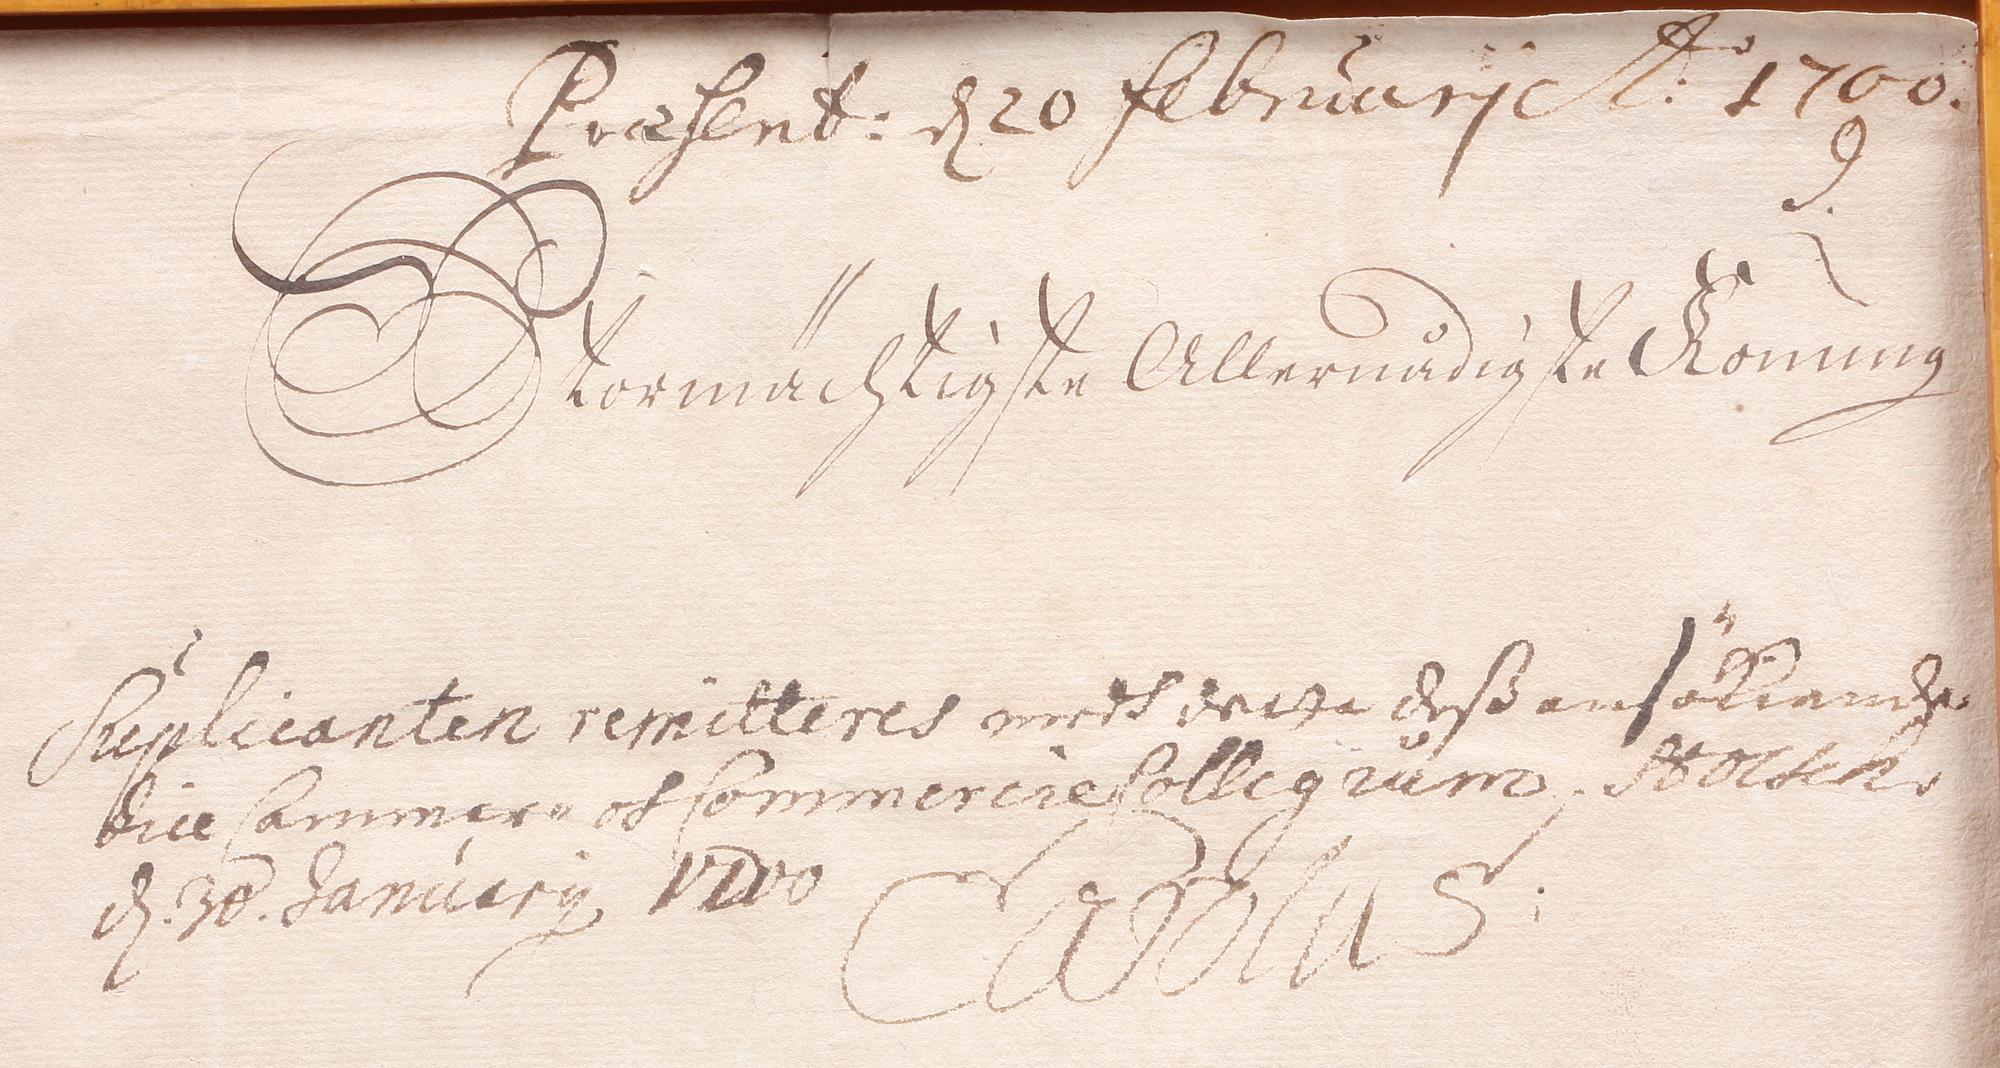 Præsent: d 20 februarij Ao: 1700.
9.
Stormächtigste Allernådigste Konung
Supplicanten remitteres medh detta dess ansökiande
till Cammer och Commercie Collegium. Stockh.
d. 30. January 1700 Carolus: